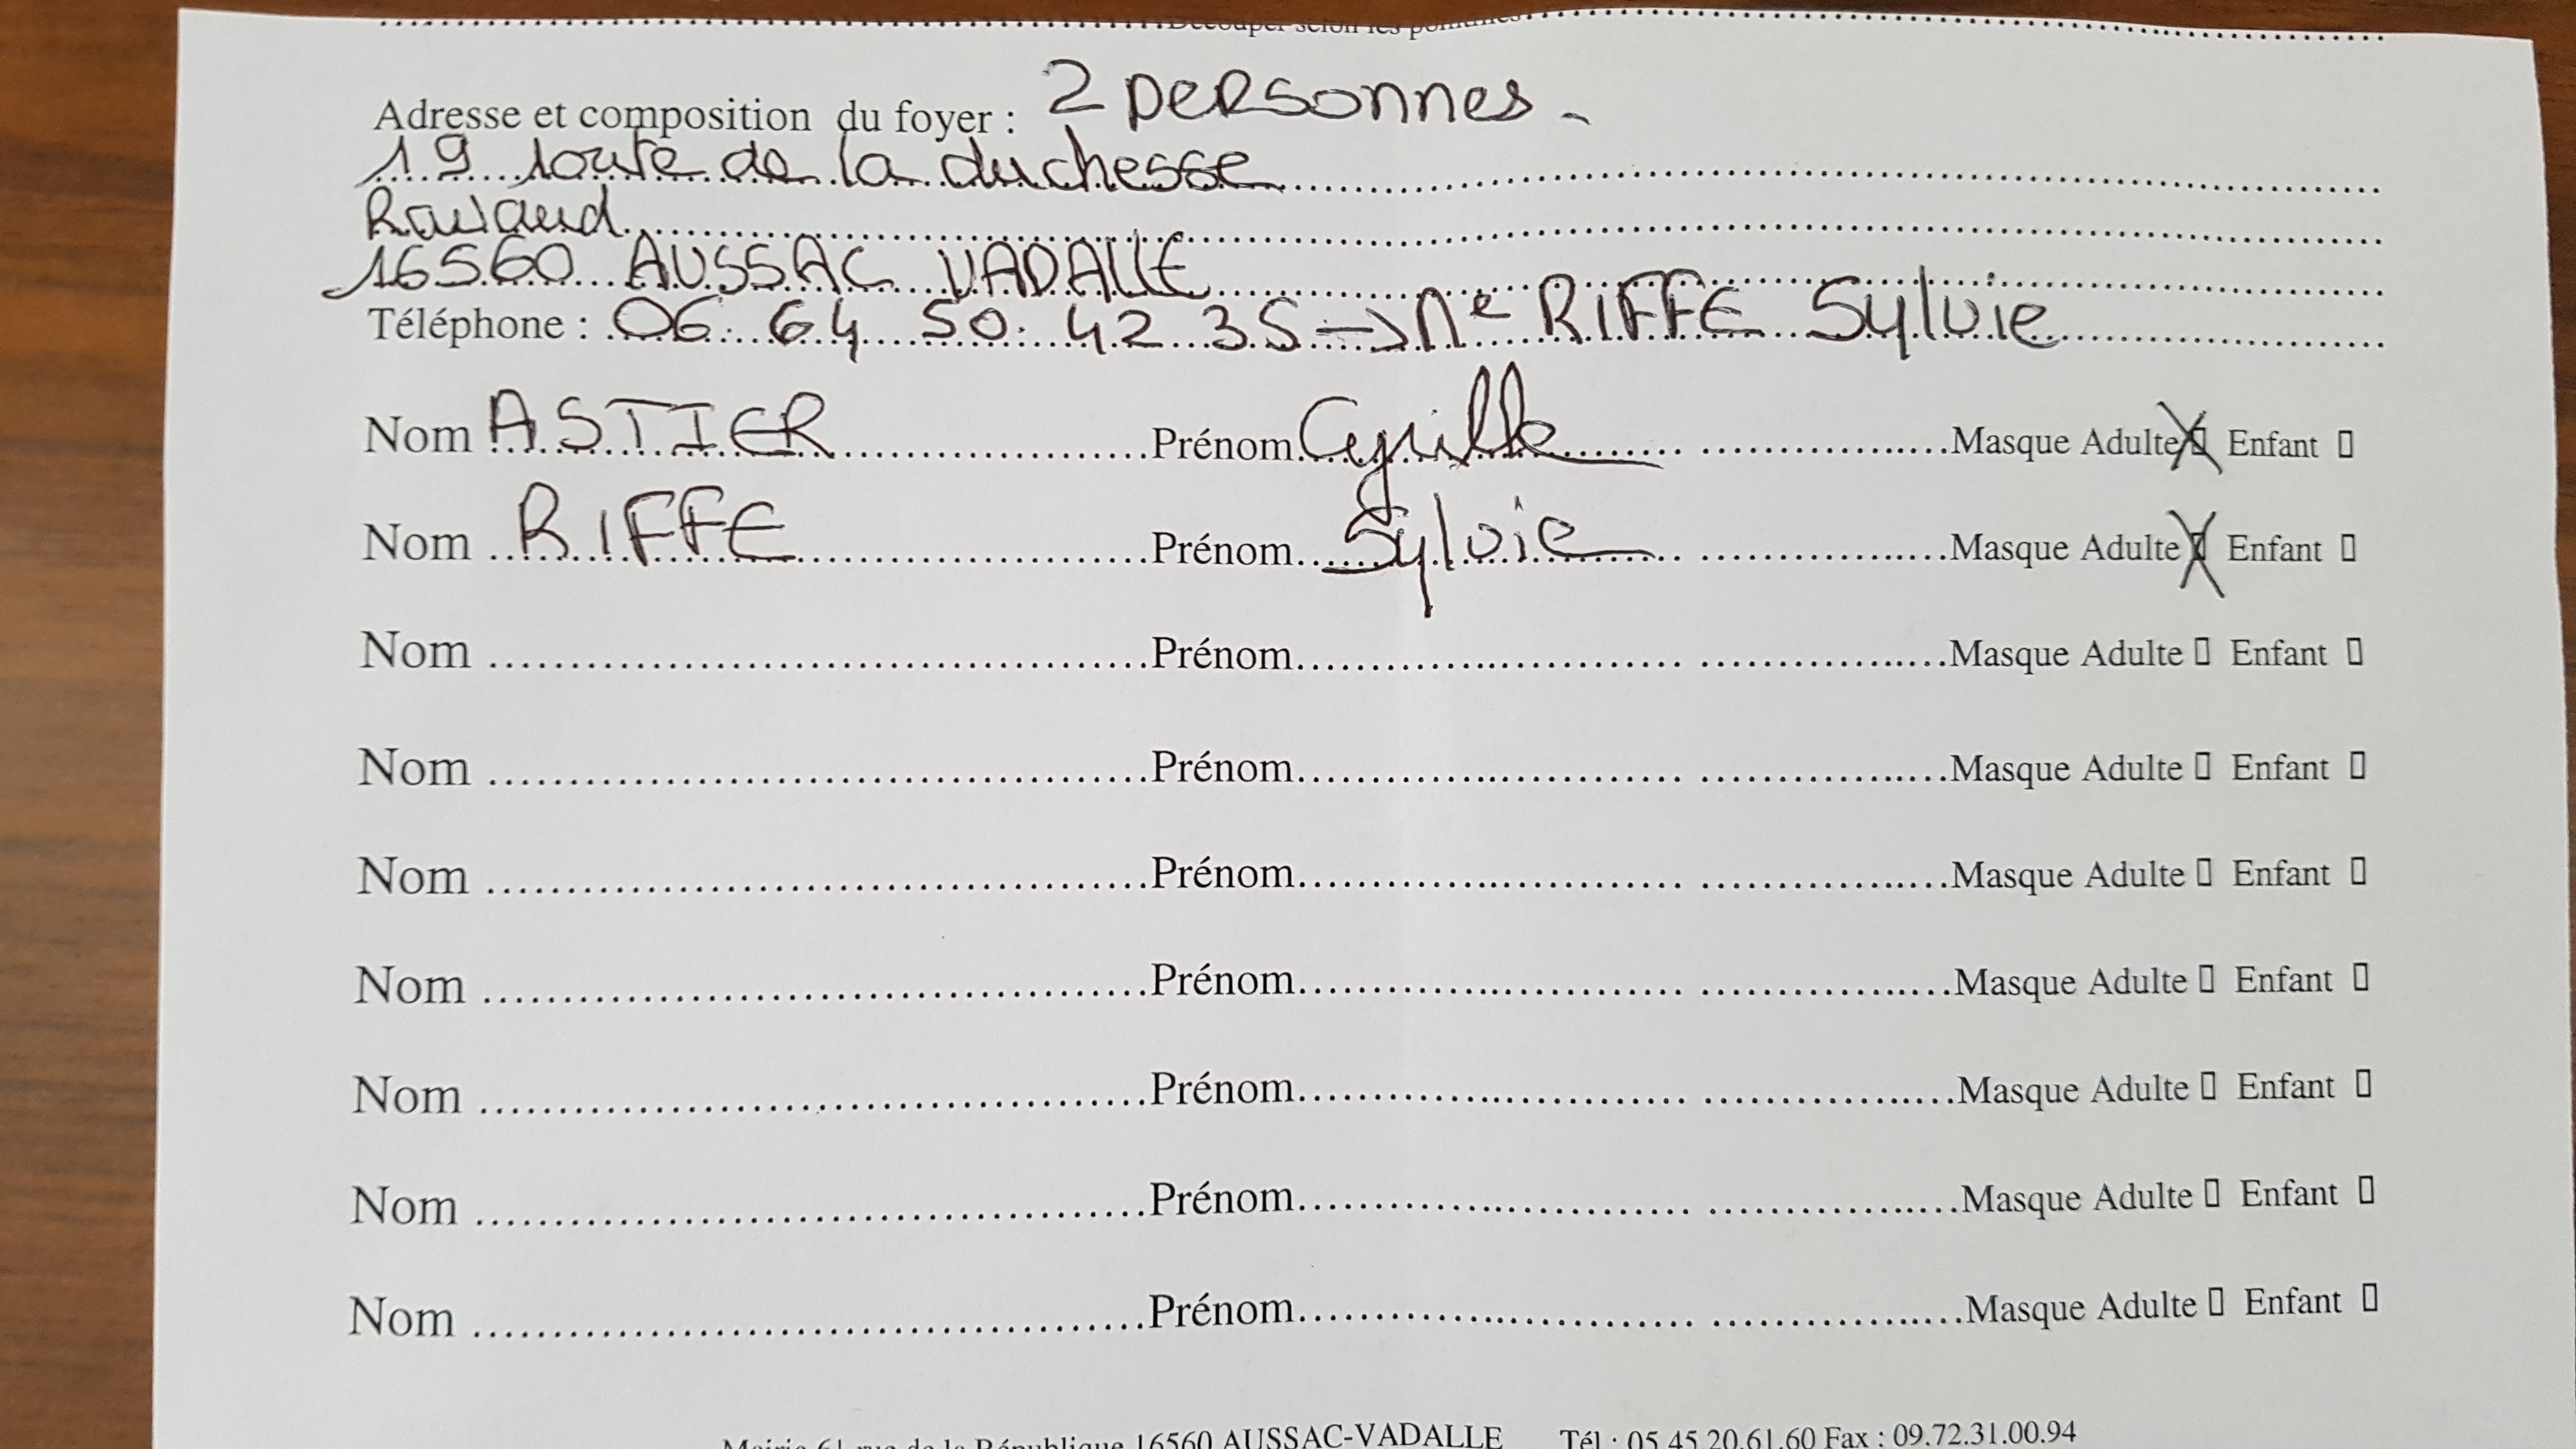 Découper selon les pointillés
Adresse et composition du foyer : 2 personnes -
19 route de la duchesse
Ravaud
16560 AUSSAC VADALLE
Téléphone : 06 64 50 42 35 → Me RIFFE Sylvie
Nom ASTIER Prénom Cyrille Masque Adulte ☒ Enfant ▯
Nom RIFFE Prénom Sylvie Masque Adulte ☒ Enfant ▯
Nom Prénom Masque Adulte ▯ Enfant ▯
Nom Prénom Masque Adulte ▯ Enfant ▯
Nom Prénom Masque Adulte ▯ Enfant ▯
Nom Prénom Masque Adulte ▯ Enfant ▯
Nom Prénom Masque Adulte ▯ Enfant ▯
Nom Prénom Masque Adulte ▯ Enfant ▯
Nom Prénom Masque Adulte ▯ Enfant ▯
Mairie 61 rue de la République 16560 AUSSAC-VADALLE Tél : 05 45 20.61.60 Fax : 09.72.31.00.94